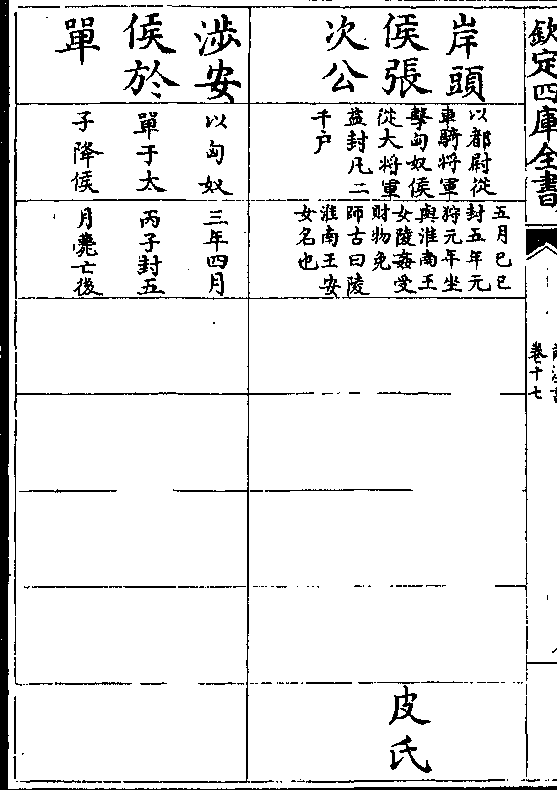 欽定四庫全書
卷十七
岸頭
侯張
次公
以都尉從
車騎將軍
擊匈奴侯
從大將軍
益封凡二
千户
五月己巳
封五年元
狩元年坐
與淮南王
女陵姦受
財物免
師古曰陵
淮南王安
女名也
皮氏
涉安
侯於
單
以匈奴
單于太
子降侯
三年四月
丙子封五
月薨亡後